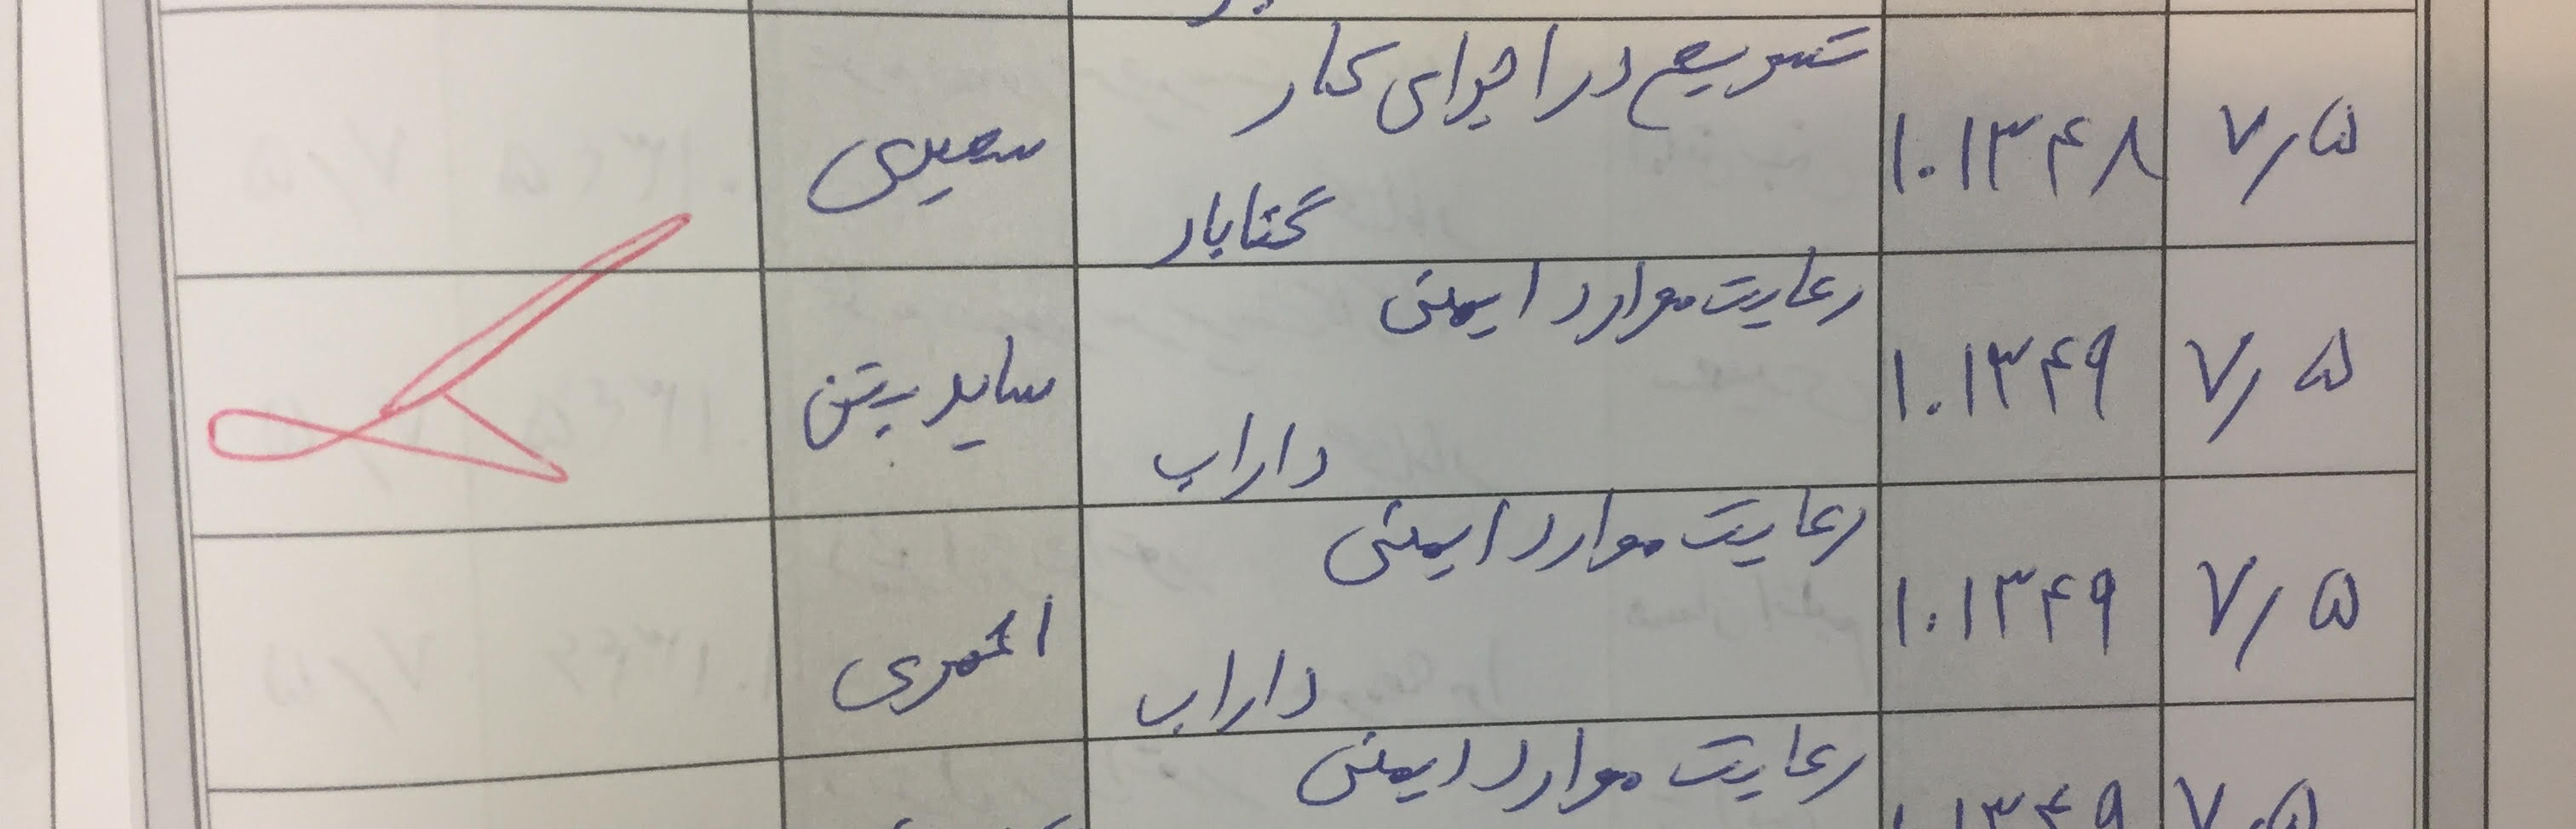 ۷/۵
۱۰۱۳۴۸
تسریع در اجرای کار
گتابار
سعیدی
۷/۵
۱۰۱۳۴۹
رعایت موارد ایمنی
داراب
ساید بتن
۷/۵
۱۰۱۳۴۹
رعایت موارد ایمنی
داراب
احمدی
۷/۵
۱۰۱۳۴۹
رعایت موارد ایمنی